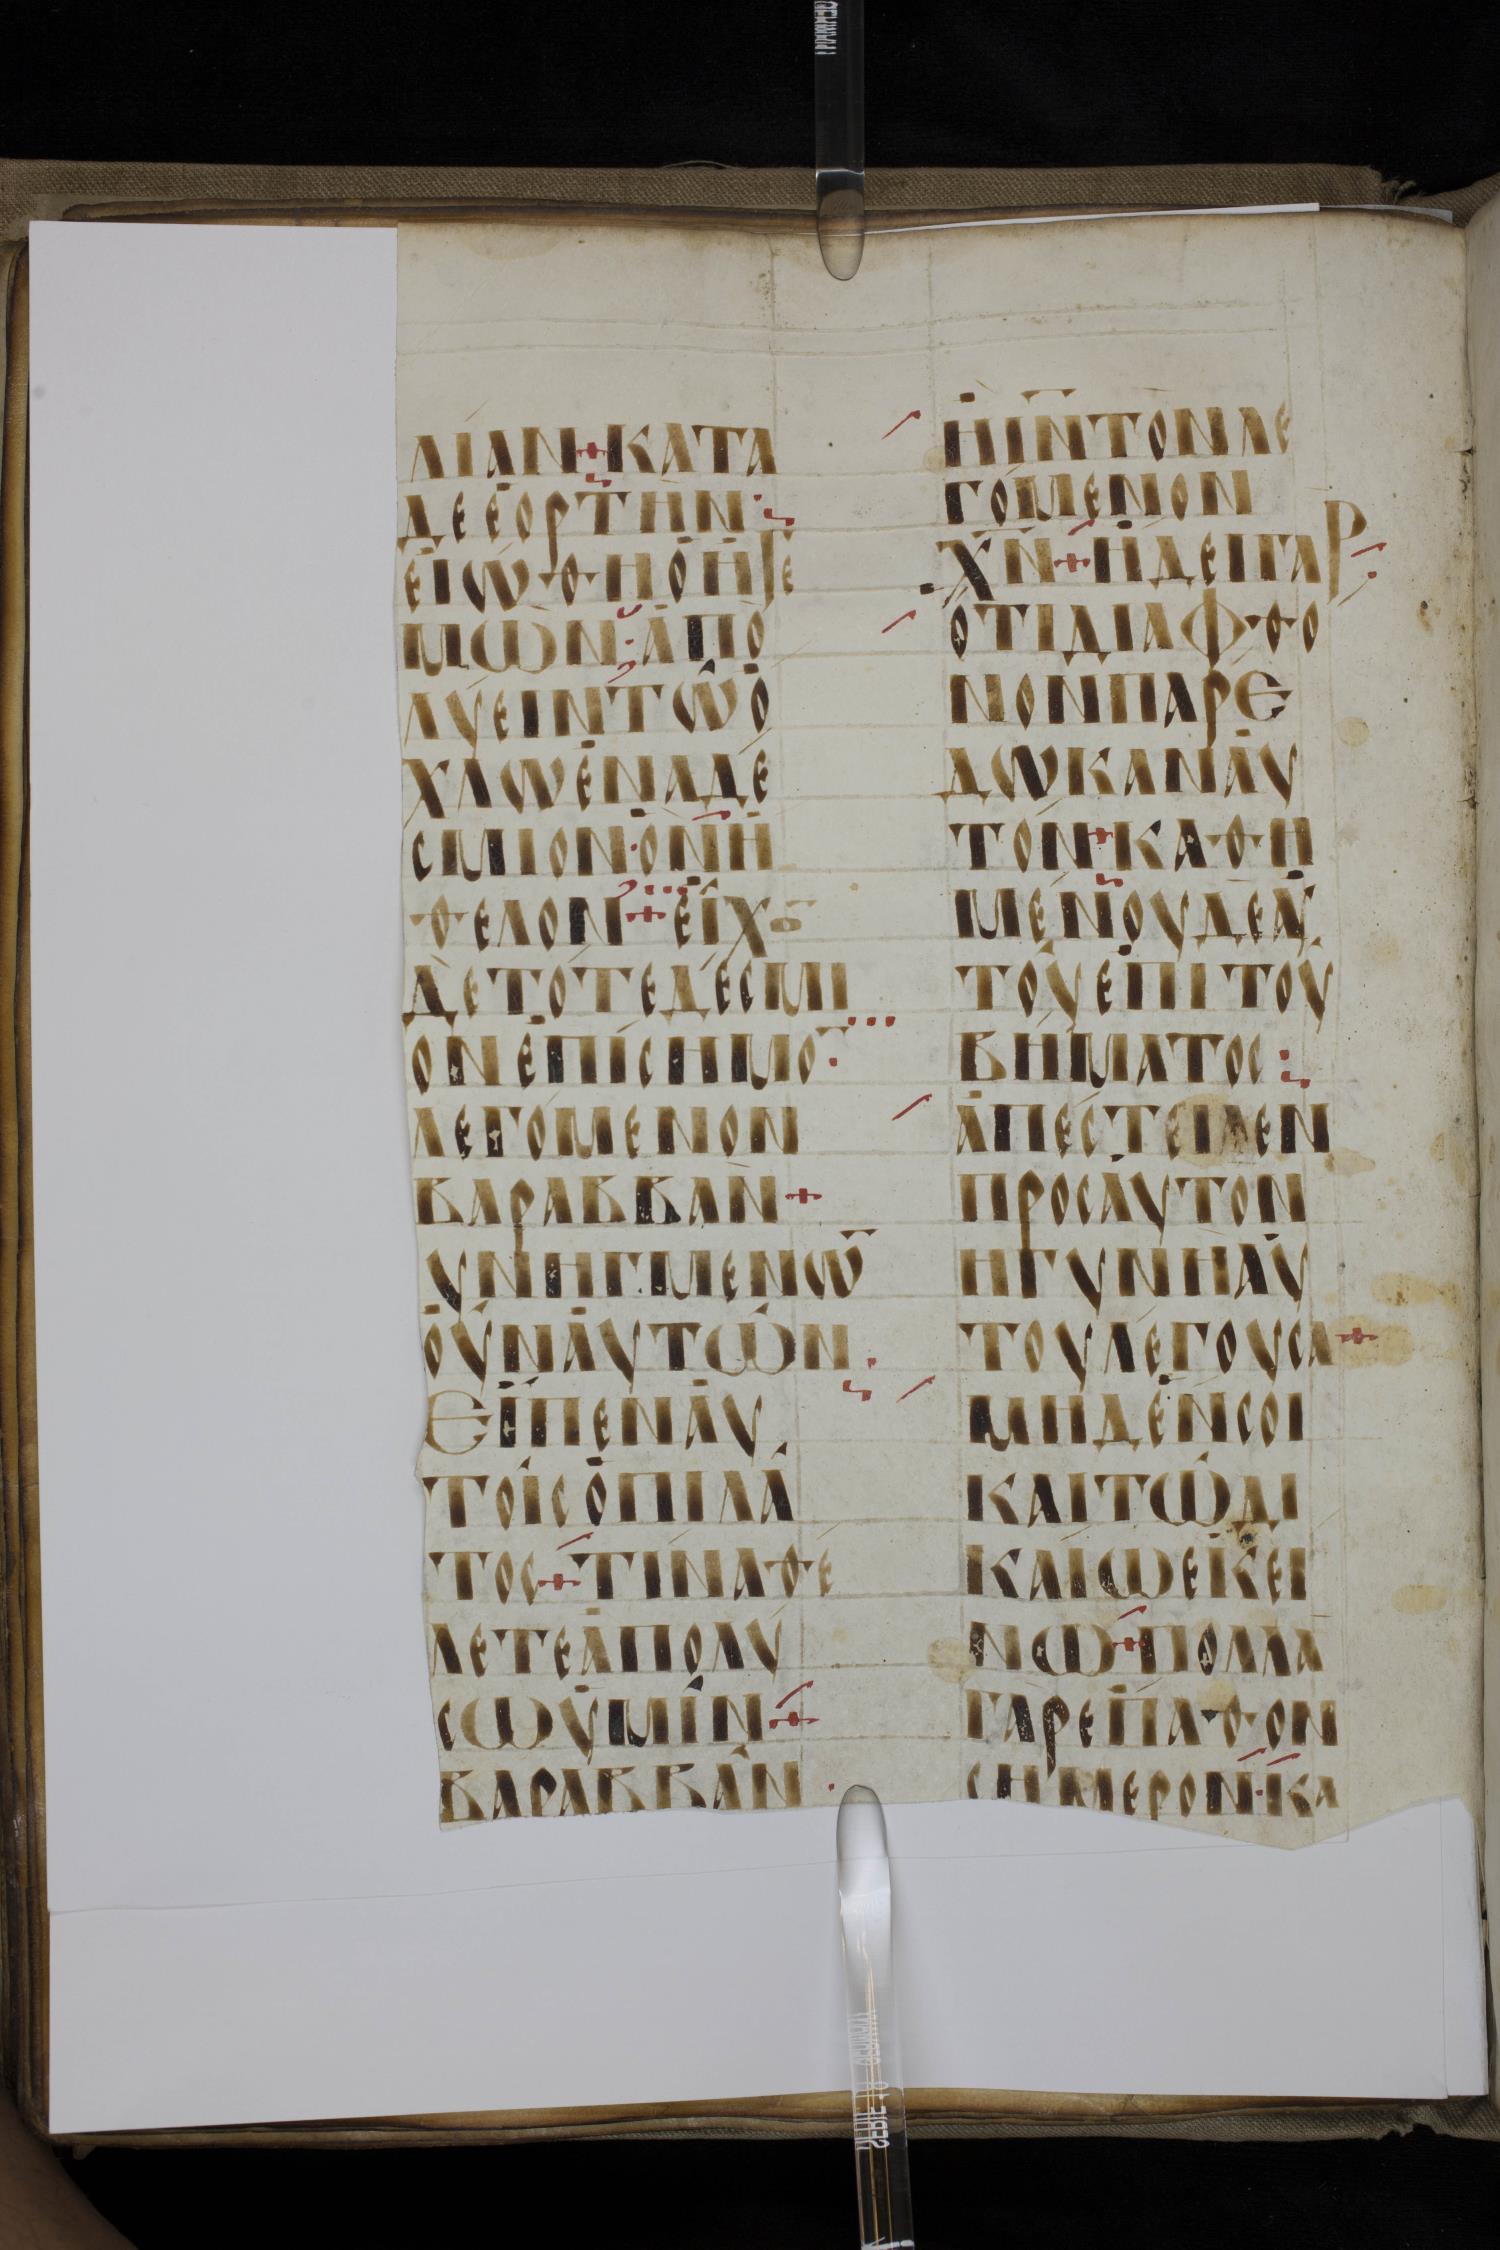 ΛΙΑΝ+ΚΑΤΑ
ΔΕΕΟΡΤΗΝ
ΕΙΩΘΗΟΗΓΕ
ΜΩΝ·ΑΠΟ
ΛΥΕΙΝΤΩΟ
ΧΛΩΕΝΑΔΕ
СΜΙΟΝ·ΟΝΗ
ΘΕΛΟΝ+ΕΙΧΟ̅
ΔΕΤΟΤΕΔΕСΜΙ
ΟΝΕΠΙСΗΜΟ̅·
ΛΕΓΟΜΕΝΟΝ
ΒΑΡΑΒΒΑΝ+
ΥΝΗΓΜΕΝΩ̅
ΟΥΝΑΥΤΩΝ·
ΕΙΠΕΝΑΥ
ΤΟΙСΟΠΙΛΑ
ΤΟС+ΤΙΝΑΘΕ
ΛΕΤΕΑΠΟΛΥ
СΩΥΜΙΝ+
ΒΑΡΑΒΒΑΝ·
ΗΙ̅Ν̅ΤΟΝΛΕ
ΓΟΜΕΝΟΝ
Χ̅Ν̅+ΗΔΕΙΓΑΡ
ΟΤΙΔΙΑΦΘΟ
ΝΟΝΠΑΡΕ
ΔΩΚΑΝΑΥ
ΤΟΝ+ΚΑΘΗ
ΜΕΝΟΥΔΕΑΥ
ΤΟΥΕΠΙΤΟΥ
ΒΗΜΑΤΟС
ΑΠΕСΤΕΙΛΕΝ
ΠΡΟСΑΥΤΟΝ
ΗΓΥΝΗΑΥ
ΤΟΥΛΕΓΟΥСΑ+
ΜΗΔΕΝСΟΙ
ΚΑΙΤΩΔΙ
ΚΑΙΩΕΚΕΙ
ΝΩ+ΠΟΛΛΑ
ΓΑΡΕΠΑΘΟΝ
СΗΜΕΡΟΝ·ΚΑ